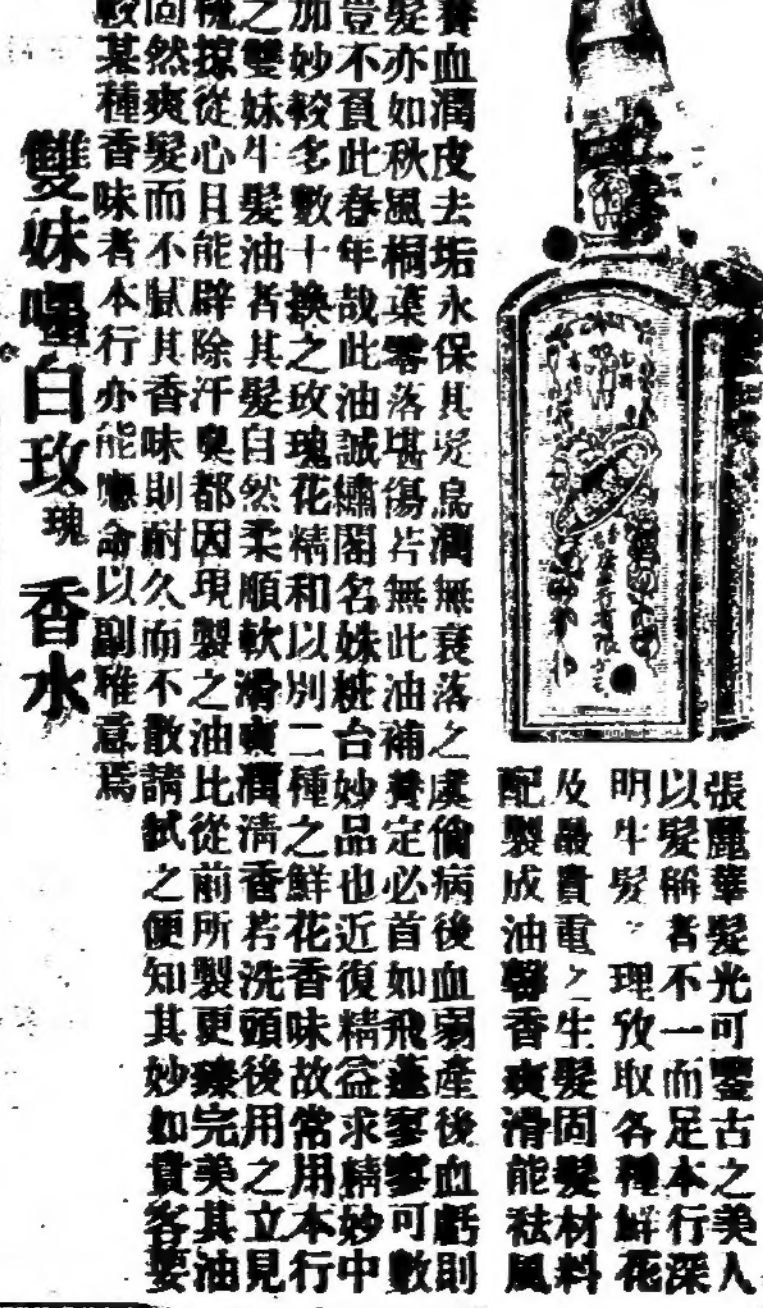 張麗華髮光可鑒古之美人
以髮稱者不一而足本行深
明生髮理攷取各種鮮花
及最貴重之生髮固髮材料
配製成油馨香爽滑能祛風
養血潤皮去垢永保其髮烏潤無衰落之虞倘病後血弱產後血虧則
髮亦如秋風桐葉零落堪傷若無此油補養定必首如飛蓬寥寥可數
豈不負此春年哉此油誠繡閣名姝粧台妙品也近復精益求精妙中
加妙較多數十換之玫瑰花精和以別二種之鮮花香味故常用本行
之雙妹生髮油者其髮自然柔順軟滑爽潤清香若洗頭後用之立見
梳掠從心且能辟除汗臭都因現製之油比從前所製更臻完美其油
固然爽髮而不膩其香味則耐久而不散請試之便知其妙如貴客要
較某種香味者本行亦能應命以副雅意焉
雙妹嚜白玫瑰香水